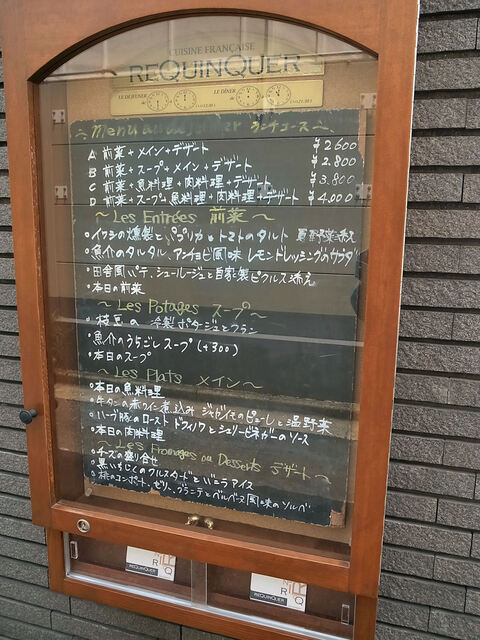 CUISINE FRANÇAISE
REQUINQUER
LE DÉJEUNER LE DÎNER
Menu au déjeuner ランチコース
A 前菜+メイン+デザート ¥2600
B 前菜+スープ+メイン+デザート ¥2.800
C 前菜+魚料理+肉料理+デザート ¥3.800
D 前菜+スープ+魚料理+肉料理+デザート ¥4,000
～Les Entrées 前菜～
・イワシの燻製とパプリカとトマトのタルト 夏野菜添え
・魚介のタルタル、アンチョビ風味 レモンドレッシングのサラダ
・田舎風パテ、シュールージュと自家製ピクルス添え
・本日の前菜
～Les Potages スープ～
・枝豆の冷製ポタージュとフラン
・魚介のうらごしスープ (+300)
・本日のスープ
～Les Plats メイン～
・本日の魚料理
・牛タンの赤ワイン煮込み ジャガイモのピューレと温野菜
・ハーブ豚のロースト ドフィノワとシェリービネガーのソース
・本日の肉料理
～Les Fromages ou Desserts デザート～
・チーズの盛り合せ
・黒いちじくのクルスタードとバニラアイス
・桃のコンポート、ゼリー、グラニテとベルベーヌ風味のソルベ
REQUINQUER
REQUINQUER